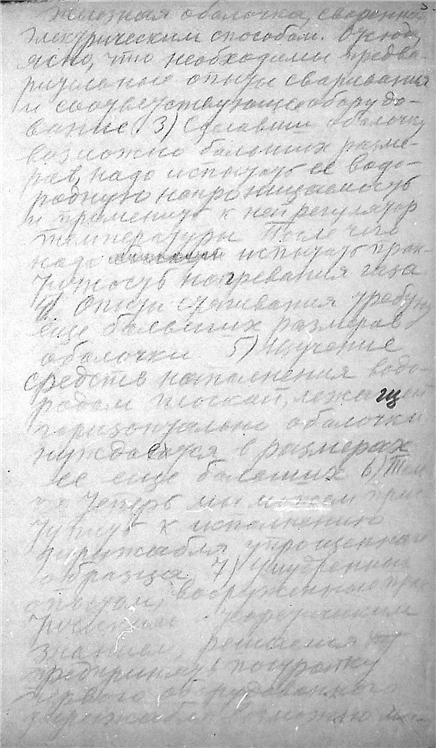 железная оболочка, сваренная
электрическим способом. Отсюда
ясно, что необходимы предва-
рительные опыты сваривания
и соответствующее оборудо-
вание. 3) Составив оболочку
возможно больших разме-
ров, надо испытать ее водо-
родную непроницаемость
и применить к ней регулятор
температуры. После чего
надо испытать прак-
тичность нагревания газа
4) Опыты стягивания требуют
еще больших размеров
оболочки 5) Изучение
средств наполнения водо-
родом плоской, лежащей
горизонтально оболочки
нуждается в размерах
ее еще больших 6)
теперь мы можем прис-
тупить к исполнению
дирижабля упрощенного
образца 7) Умудренные
опытом, вооруженные
знанием, решаемся
предпринять постройку
первого оборудованного
дирижабля возможно